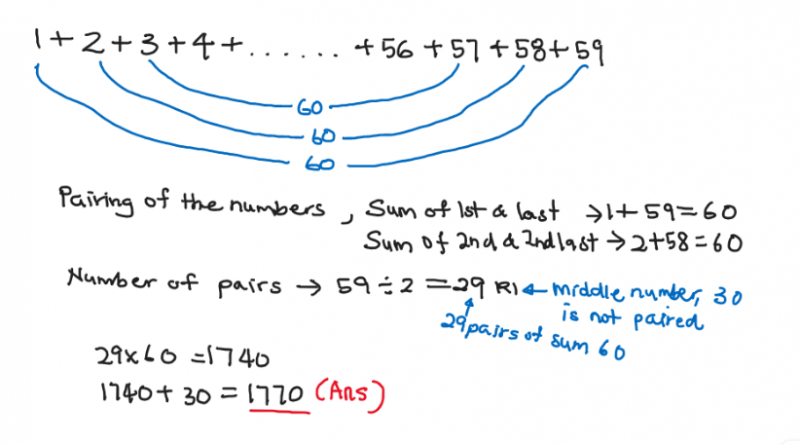 1 + 2 + 3 + 4 + ...... + 56 + 57 + 58 + 59
60
60
60
Pairing of the numbers, Sum of 1st & last → 1 + 59 = 60
Sum of 2nd & 2nd last → 2 + 58 = 60
Number of pairs → 59 ÷ 2 = 29 R1 ← middle number, 30
is not paired
29 pairs of sum 60
29 x 60 = 1740
1740 + 30 = 1770 (Ans)